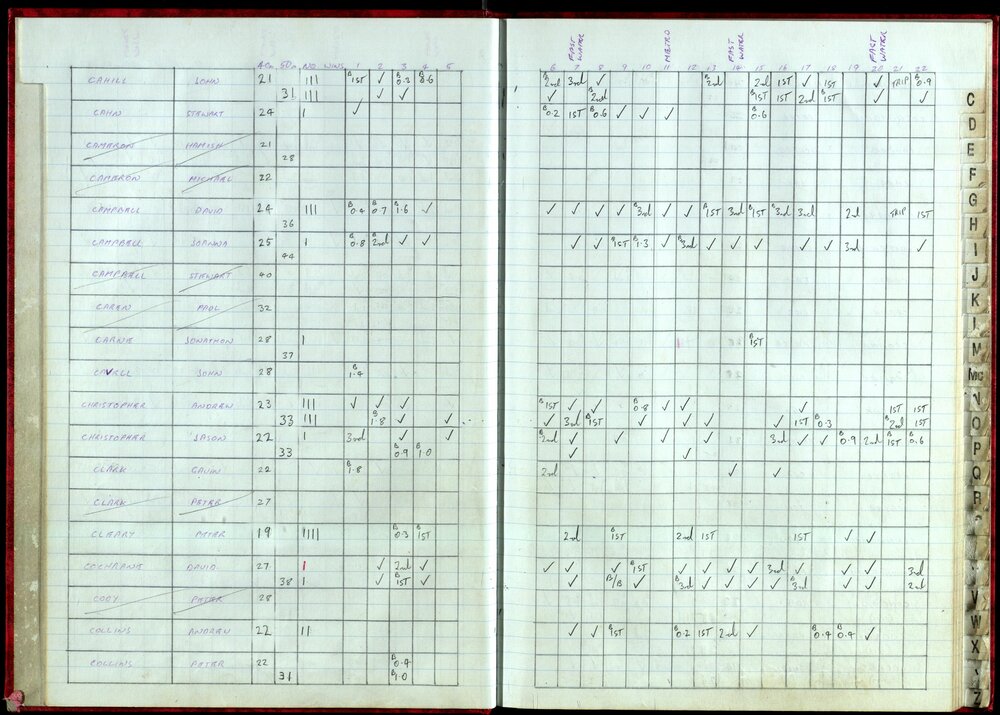 FAST WATER METRO FAST WATER FAST WATER
40m 50m NO WINS 1 2 3 4 5 6 7 8 9 10 11 12 13 14 15 16 17 18 19 20 21 22
CAHILL JOHN 21 III B 1ST ✓ B 0.3 B 0.6 B 2nd 3rd ✓ B 2nd 2nd 1ST ✓ B 1ST ✓ TRIP B 0.9
31 III ✓ ✓ ✓ B 2nd B 1ST 1ST 2nd B 1ST ✓ ✓
CAHN STEWART 24 I ✓ B 0.2 1ST B 0.6 ✓ ✓ ✓ B 0.6
CAMERON HAMISH 21
28
CAMERON MICHAEL 22
CAMPBELL DAVID 24 III B 0.4 B 0.7 B 1.6 ✓ ✓ ✓ ✓ ✓ B 3rd ✓ ✓ B 1ST 3rd B 1ST B 3rd 3rd 2nd TRIP 1ST
36
CAMPBELL JOANNA 25 I B 0.8 B 2nd ✓ ✓ ✓ ✓ B 1ST B 1.3 ✓ B 3rd ✓ ✓ ✓ ✓ ✓ 3rd ✓
44
CAMPBELL STEWART 40
CAREN PAUL 32
CARNIE JONATHON 28 I B 1ST
37
CAVILL JOHN 28 B 1.4
CHRISTOPHER ANDREW 23 III ✓ ✓ ✓ B 1ST ✓ ✓ B 0.8 ✓ ✓ ✓ 1ST 1ST
33 III B 1.8 ✓ ✓ ✓ 3rd B 1ST ✓ ✓ ✓ ✓ 1ST B 0.3 B 2nd 1ST
CHRISTOPHER JASON 22 I 3rd ✓ ✓ B 2nd ✓ ✓ ✓ ✓ 3rd ✓ ✓ B 0.9 2nd B 1ST B 0.6
33 B 0.9 B 1.0 ✓ ✓
CLARK GAVIN 22 B 1.8 2nd ✓ ✓
CLARK PETER 27
CLEARY PETER 19 IIII B 0.3 B 1ST 2nd B 1ST 2nd 1ST 1ST ✓ ✓
COCHRANE DAVID 27 I ✓ 2nd ✓ ✓ ✓ ✓ B 1ST ✓ ✓ ✓ ✓ 3rd ✓ ✓ ✓ 3rd
38 I ✓ B 1ST ✓ ✓ B/B ✓ B 3rd ✓ ✓ ✓ ✓ B 3rd ✓ ✓ 2nd
CODY PETER 28
COLLINS ANDREW 22 II ✓ ✓ B 1ST B 0.2 1ST 2nd ✓ B 0.4 B 0.4 ✓
COLLINS PETER 22 B 0.9
31 B 1.0
C
D
E
F
G
H
I
J
K
L
M
Mc
N
O
P
Q
R
V
W
X
Z